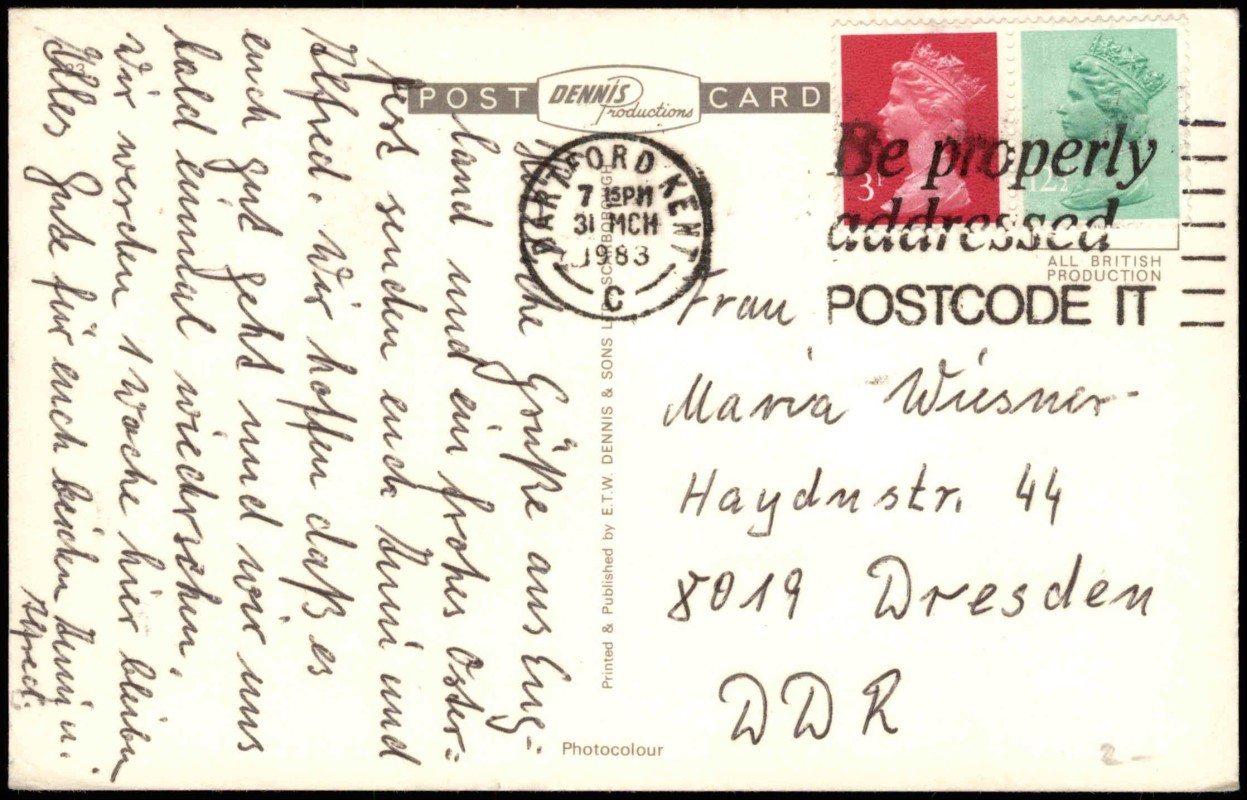 POST DENNIS Productions CARD
3P 12½
DARTFORD KENT
7 15PM
31 MCH
1983
C
Be properly
addressed
POSTCODE IT
ALL BRITISH
PRODUCTION
Herzliche Grüße aus Eng-
land und ein frohes Oster-
fest senden euch Anni und
Alfred. Wir hoffen daß es
euch gut geht und wir uns
bald einmal wiedersehen.
Wir werden 1 Woche hier bleiben
Alles Gute für euch beiden Anni u.
Alfred.
Frau
Maria Wiesner
Haydnstr. 44
8019 Dresden
DDR
Printed & Published by E.T.W. DENNIS & SONS LTD., SCARBOROUGH
Photocolour
2-